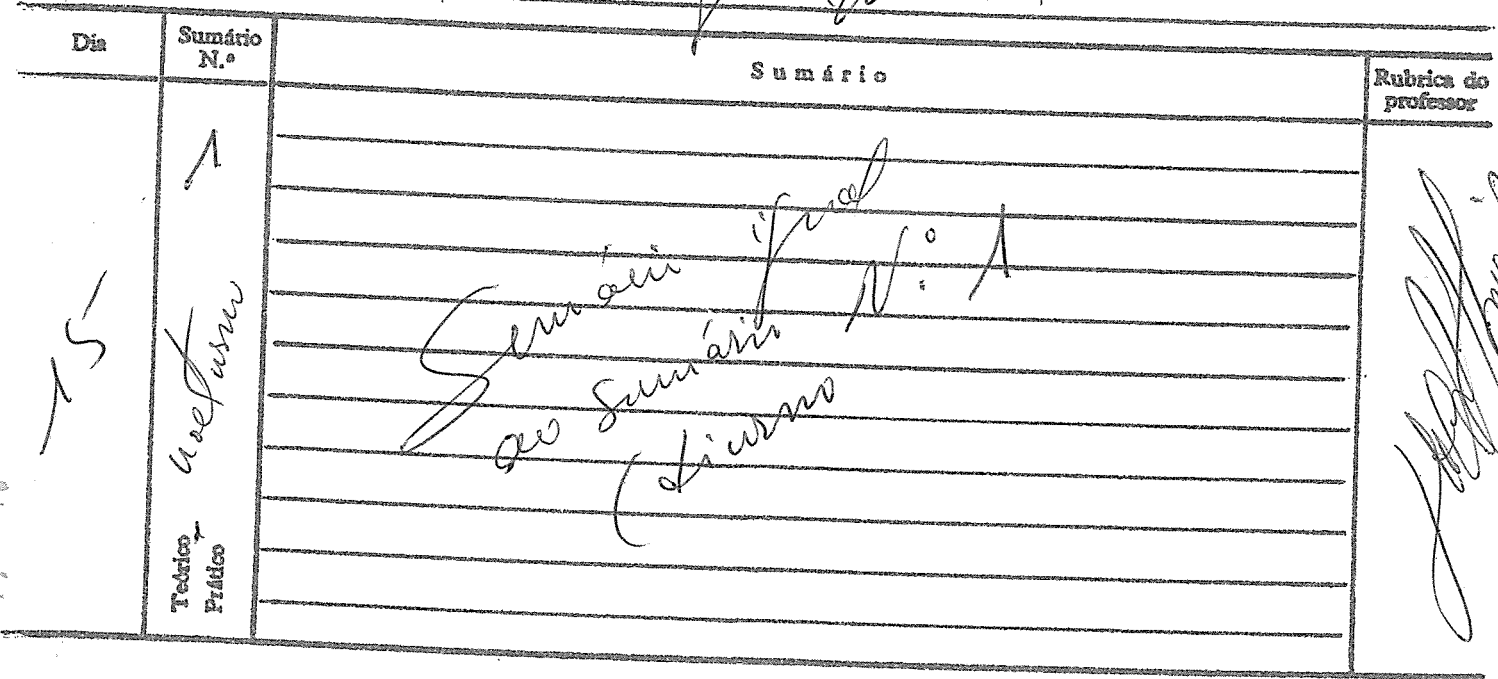 Dia
Sumário
N.º
Sumário
Rubrica do
professor
15
1
Nocturno
Teórico
Prático
Sumário igual
ao Sumário N.º 1
(diurno